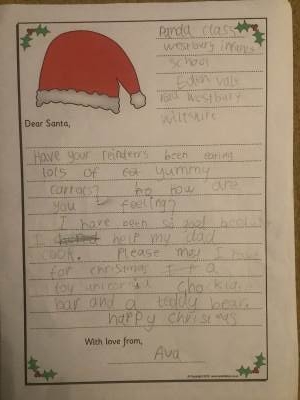 Panda class
Westbury infants
School
Eden Vale
Westbury
Wiltshire
Dear Santa,
Have your reindeers been eating
lots of yummy
carrots? how are
you feeling?
I have been good
I help my dad
cook. Please may I have
for christmas a
toy unicorn
bar and a teddy bear.
happy christmas
With love from,
Ava